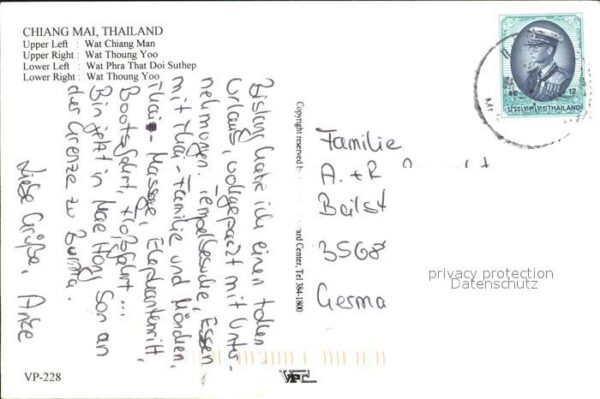 CHIANG MAI, THAILAND
Upper Left : Wat Chiang Man
Upper Right : Wat Thoung Yoo
Lower Left : Wat Phra That Doi Suthep
Lower Right : Wat Thoung Yoo
Bislang hatte ich einen tollen
Urlaub, vollgepackt mit Unter-
nehmungen. Tempelbesuche, Essen
mit Thai-Familie und Mönchen,
Thai-Massage, Elephantenritt,
Bootsfahrt, Floßfahrt ...
Bin jetzt in Mae Hong Son an
der Grenze zu Burma.
Liebe Grüße, Anke
Copyright reserved b
ard Center, Tel 384-1800
12
ประเทศไทย THAILAND
Familie
A. + R
Beilst
3568
Germa
privacy protection
Datenschutz
VP-228
VP